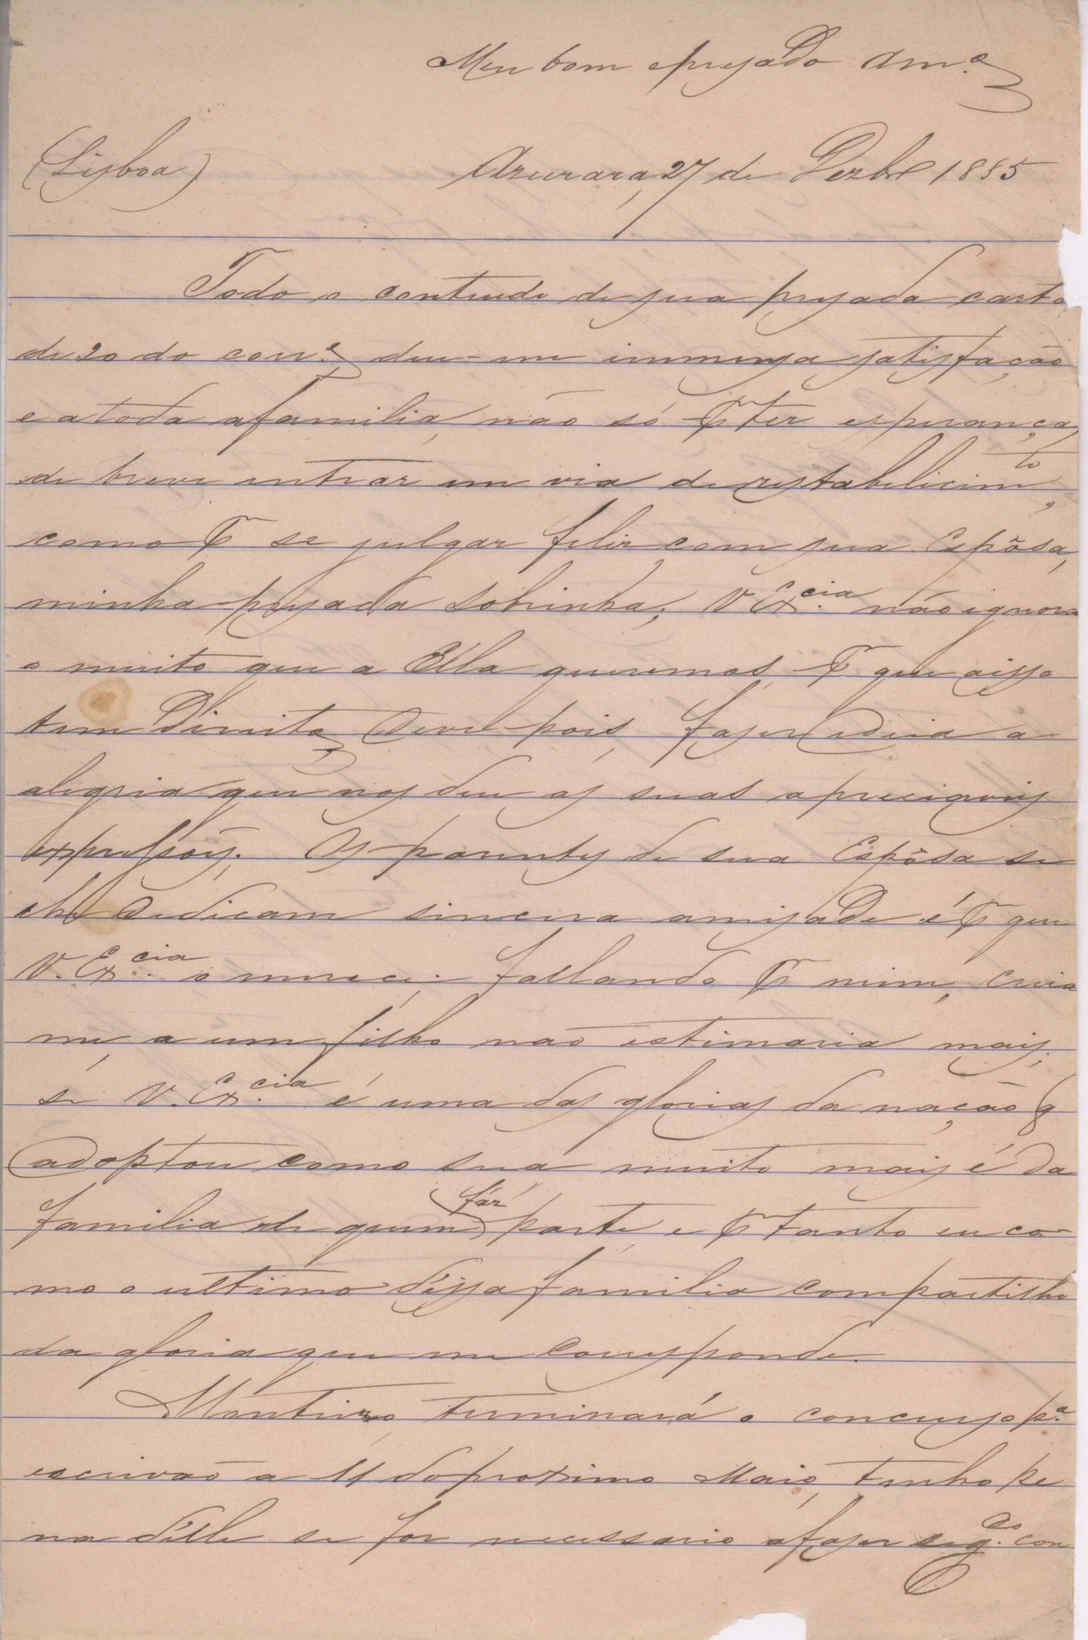 Meu bom e presado Am.º
(Lisboa) Azurara, 27 de Dezbr.º 1885
Todo o contendo de sua presada carta
de 20 do corr.e deu-me immensa satisfação
e a toda a familia, não só ter esperança,
de breve entrar em via de restabelicim.to,
como se julgar feliz com sua Espôsa,
minha presada sobrinha; V. Ex.cia não ignora
o muito que a Ella queremos, que a isso
tem Direito, Deve pois, fazer ideia a
alegria que nos deu as suas apreciaveis
expressões; Os parentes de sua Espôsa se
lhe Dedicam sincera amisade é que
V. Ex.cia o merece: fallando mim, creia
me, a um filho não estimaria mais;
se V. Ex.cia é uma das glorias da nação q
adoptou como sua muito mais é da
familia de quem faz parte, e tanto eu co-
mo o ultimo d'essa familia compartilho
da gloria que me corresponde.
Monteiro, terminará o concurso p.a
escrivão a 11 do proximo Maio, tenho pe
na d'elle se for necessario a fazer seg.do con